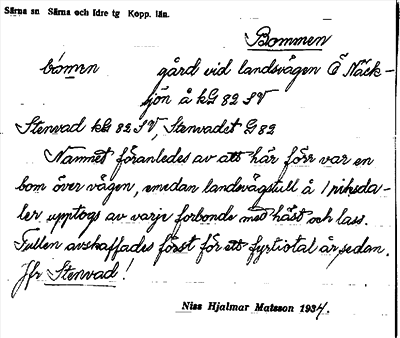 Särna sn Särna och Idre tg Kopp. län.
Bommen
bómen gård vid landsvägen Ö Näck-
sjön å kG 82 SV
Stenvad kG 82 SV, Stenvadet G 82
Namnet föranledes av att här förr var en
bom över vägen, emedan landsvägstull å 1 riksda-
ler upptogs av varje forbonde med häst och lass.
Tullen avskaffades först för ett fyrtiotal år sedan.
Jfr Stenvad!
Niss Hjalmar Matsson 1934.